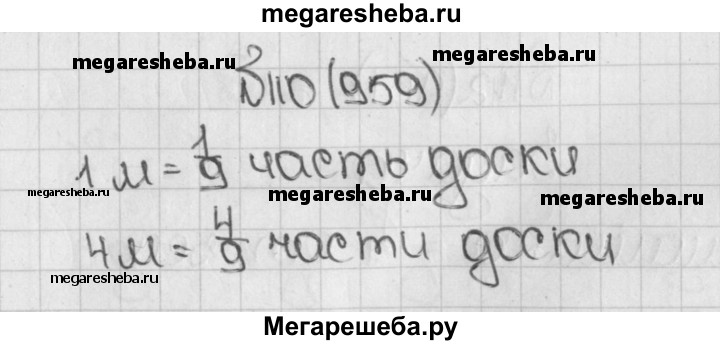 megaresheba.ru
megaresheba.ru
megaresheba.ru
№110 (959)
1 м = 1/9 часть доски
megaresheba.ru
megaresheba.ru
megaresheba.ru
4 м = 4/9 части доски
megaresheba.ru
Мегарешеба.ру